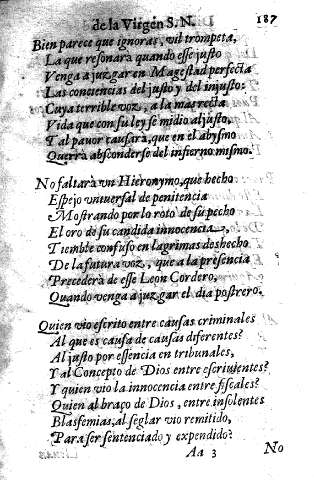 de la Virgen S.N. 187
Bien parece que ignoras, vil trompeta,
La que resonarà quando esse justo
Venga a juzgar en Magestad perfecta
Las conciencias del justo y del injusto:
Cuya terrible voz, a la mas recta
Vida que con su ley se midio al justo,
Tal pavor causarà, que en el abysmo
Querrà absconderse del infierno mismo.
No faltarà un Hieronymo, que hecho
Espejo universal de penitencia
Mostrando por lo roto de su pecho
El oro de su candida innocencia,
Tiemble confuso en lagrimas deshecho
De la futura voz, que a la presencia
Precederà de esse Leon Cordero,
Quando venga a juzgar el dia postrero.
Quien vio escrito entre causas criminales
Al que es causa de causas diferentes?
Al justo por essencia en tribunales,
Y al Concepto de Dios entre escrivientes?
Y quien vio la innocencia entre fiscales?
Quien al braço de Dios, entre insolentes
Blasfemias, al seglar vio remitido,
Para ser sentenciado y expendido?
Aa 3 No